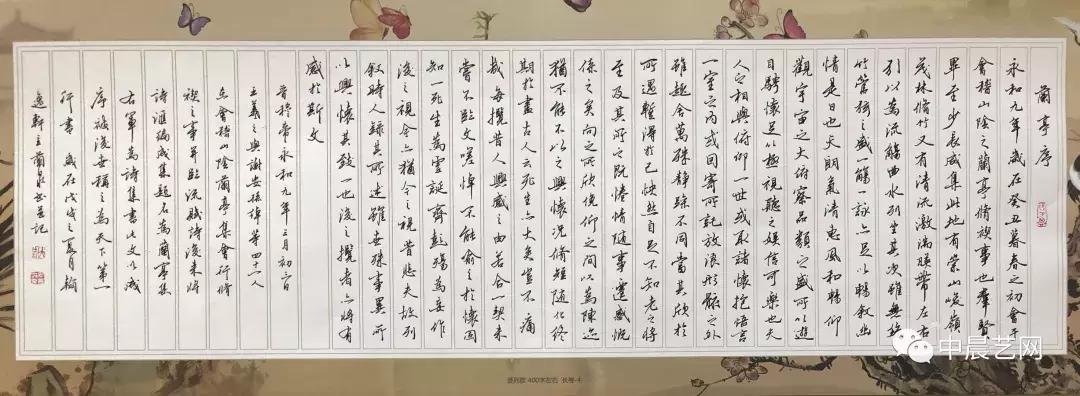 蘭亭序
永和九年歲在癸丑暮春之初會于
會稽山陰之蘭亭脩禊事也羣賢
畢至少長咸集此地有崇山峻嶺
茂林脩竹又有清流激湍暎帶左右
引以為流觴曲水列坐其次雖無絲
竹管絃之盛一觴一詠亦足以暢叙幽
情是日也天朗氣清惠風和暢仰
觀宇宙之大俯察品類之盛所以遊
目騁懷足以極視聽之娛信可樂也夫
人之相與俯仰一世或取諸懷抱語言
一室之內或因寄所託放浪形骸之外
雖趣舍萬殊靜躁不同當其欣於
所遇暫得於己快然自足不知老之將
至及其所之既惓情隨事遷感慨
係之矣向之所欣俛仰之間以為陳迹
猶不能不以之興懷況脩短隨化終
期於盡古人云死生亦大矣豈不痛
哉每攬昔人興感之由若合一契未
嘗不臨文嗟悼不能喻之於懷固
知一死生為虛誕齊彭殤為妄作
後之視今亦猶今之視昔悲夫故列
叙時人錄其所述雖世殊事異所
以興懷其致一也後之攬者亦將有
感於斯文
晉穆帝永和九年三月初三日
王羲之與謝安孫綽等四十一人
在會稽山陰蘭亭集會行脩
禊之事並臨流賦詩後來將
詩滙編成集題名為蘭亭集
右軍為詩集書此文以成
序被後世稱之為天下第一
行書 歲在戊戌之夏月
逸軒主蘭泉書並記
竖列款 400字左右 长卷-4
中晨艺网